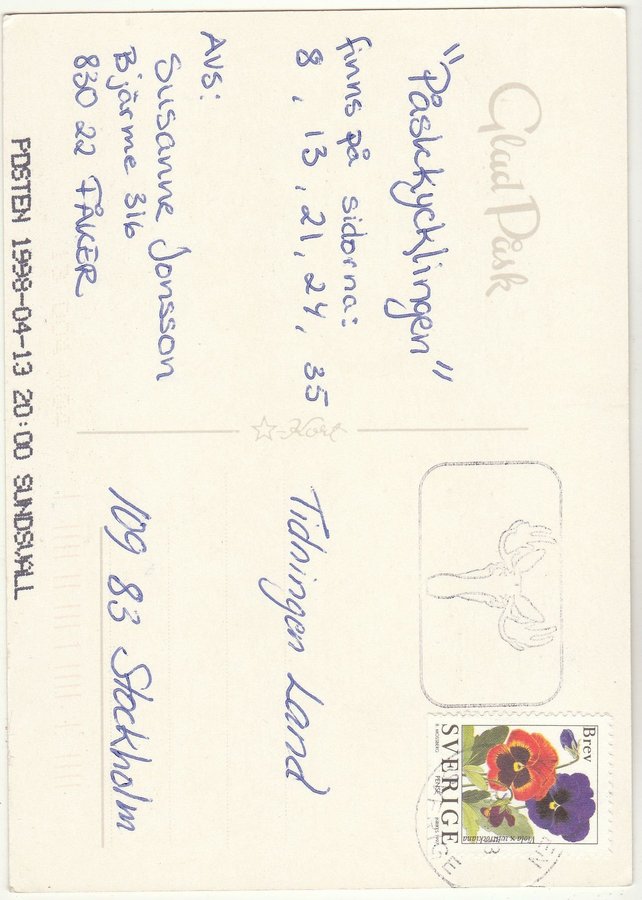 Glad Påsk
"Påskkycklingen"
finns på sidorna:
8, 13, 21, 24, 35
Avs:
Susanne Jonsson
Bjärme 316
830 22 FÅKER
Kort
Tidningen Land
109 83 Stockholm
Brev
SVERIGE
Viola x wittrockiana
POSTEN 1998-04-13 20:00 SUNDSVALL